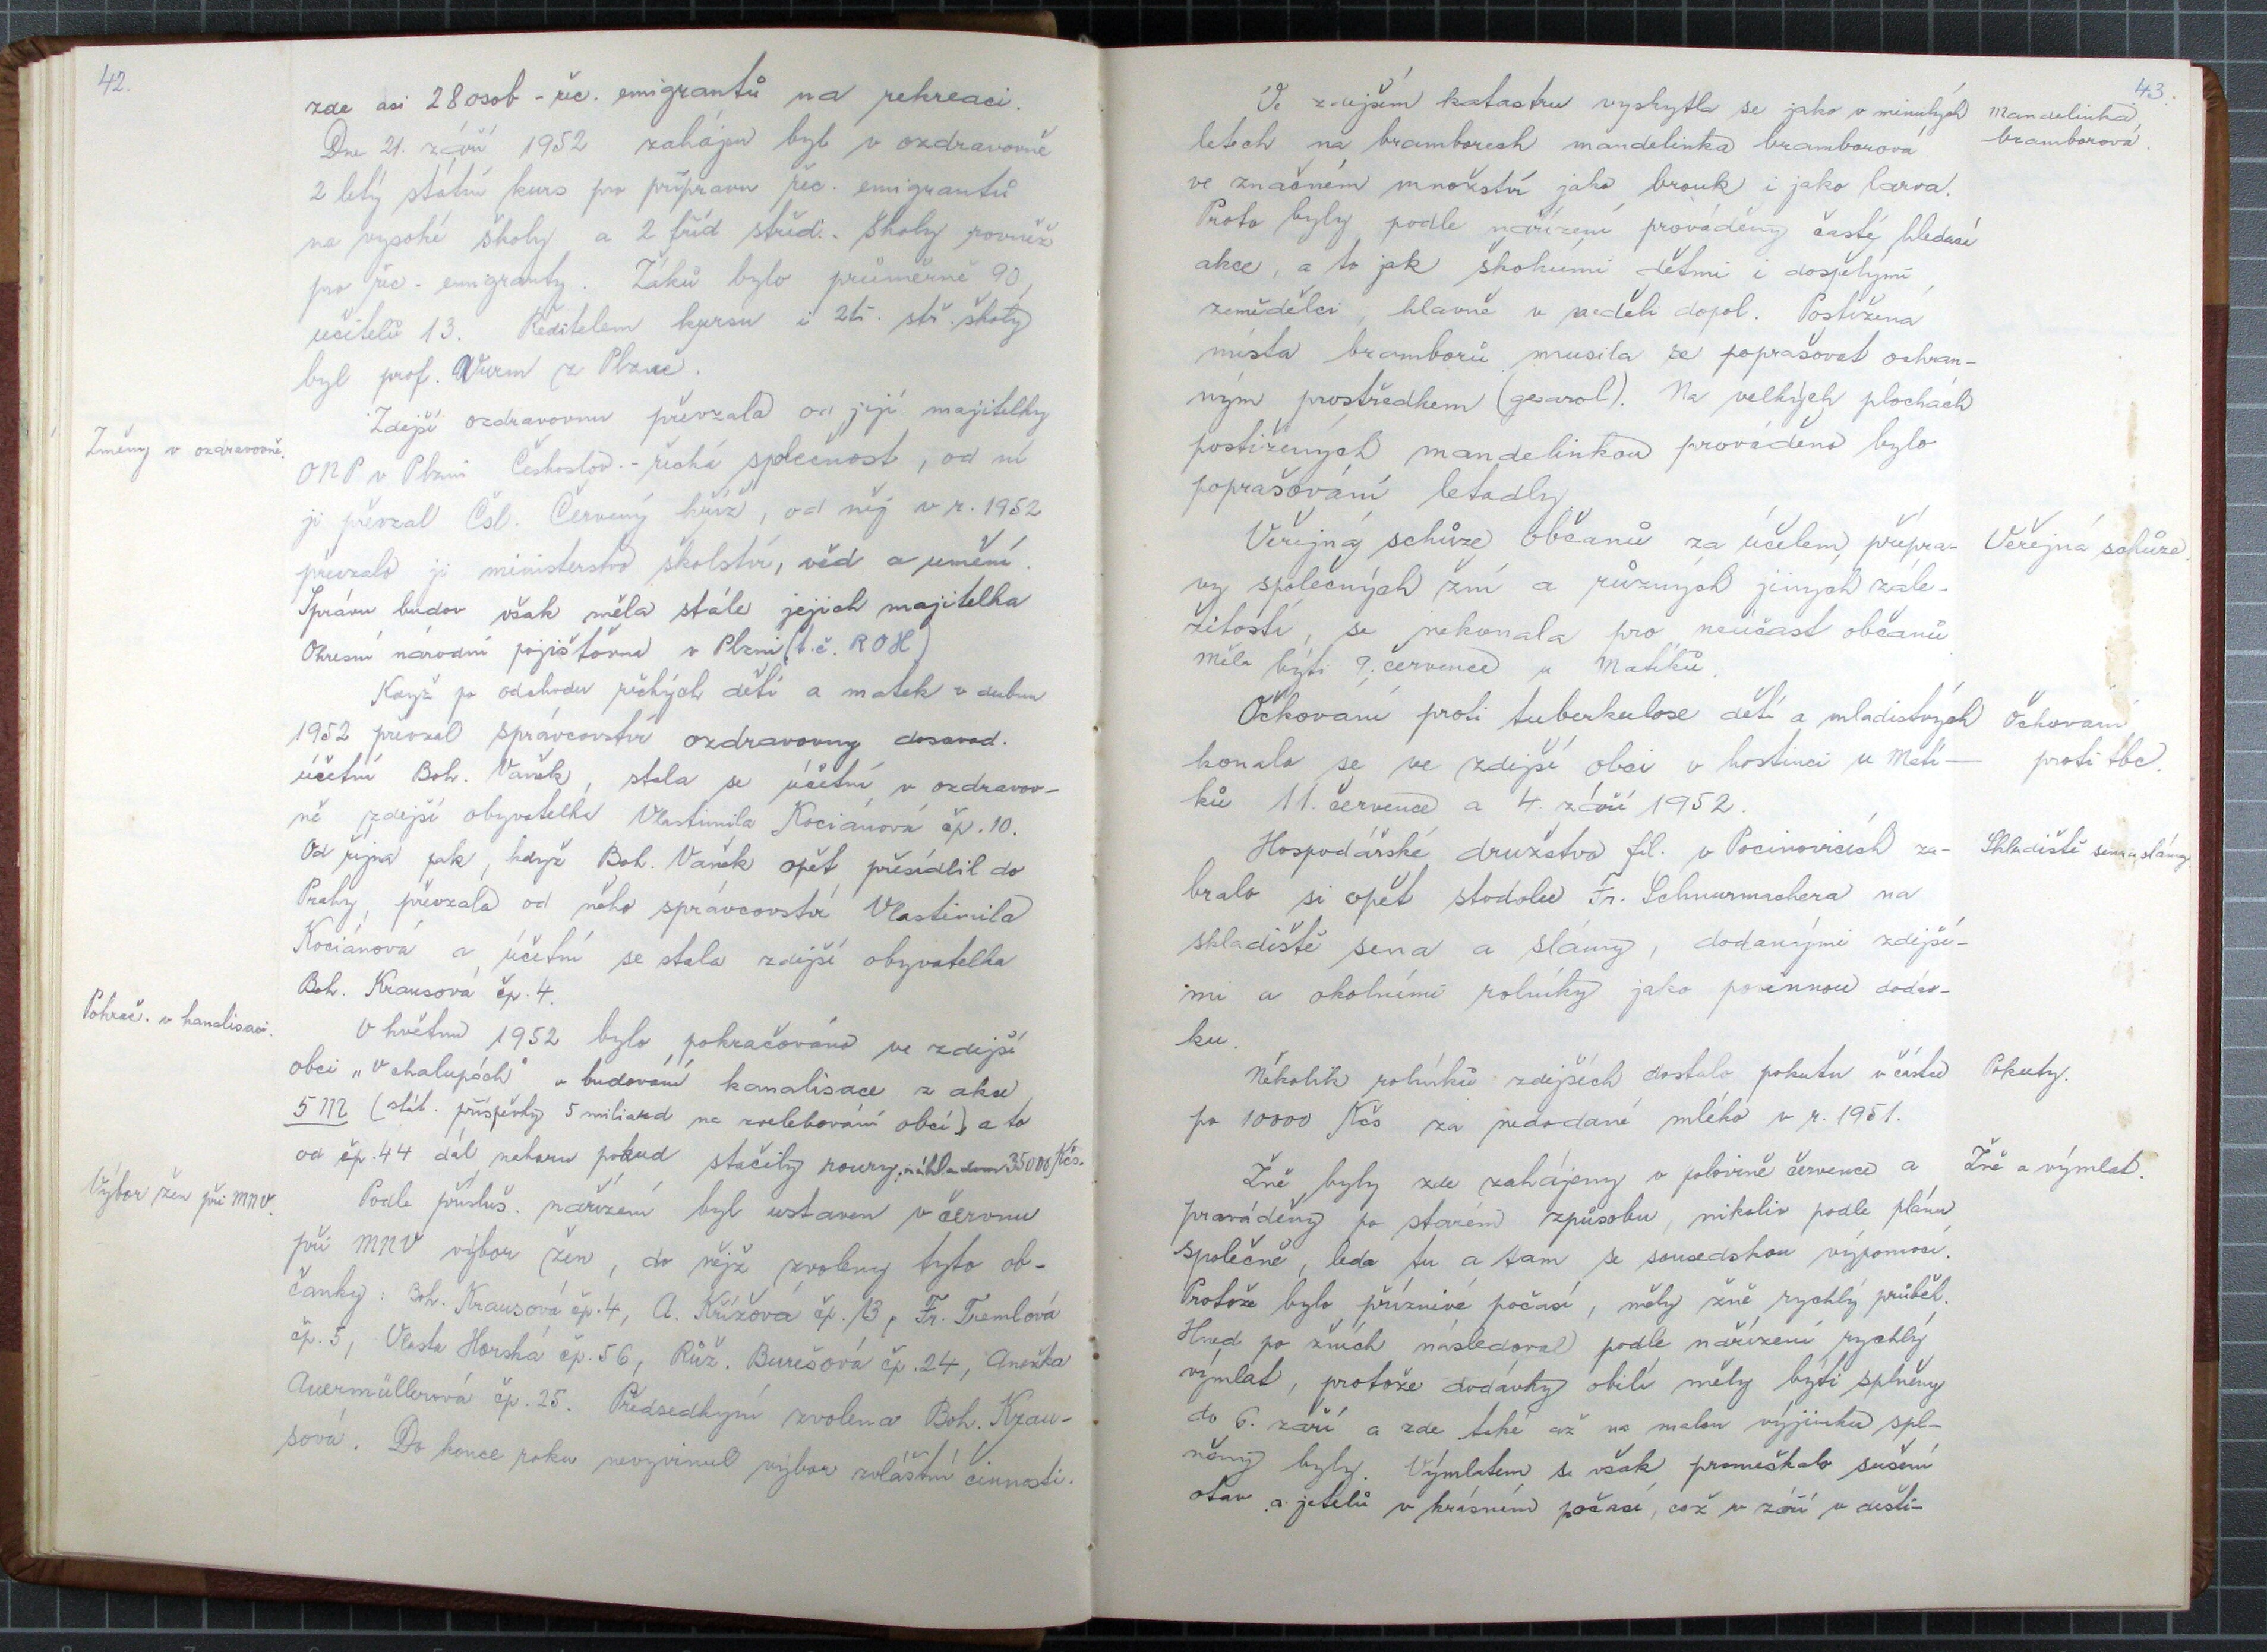 42.
zde asi 28 osob - řec. emigrantů na rekreaci.
Dne 21. září 1952 zahájen byl v ozdravovně
2 letý státní kurs pro přípravu řec. emigrantů
na vysoké školy a 2 tříd střed. školy rovněž
pro řec. emigranty. Žáků bylo průměrně 90,
učitelů 13. Ředitelem kursu i 2tř. stř. školy
byl prof. Wurm z Plzně.
Změny v ozdravovně.
Zdejší ozdravovnu převzala od její majitelky
ONP v Plzni Českoslov. - řecká společnost, od ní
ji převzal Čsl. Červený kříž, od něj v r. 1952
převzalo ji ministerstvo školství, věd a umění.
Správu budov však měla stále jejich majitelka
Okresní národní pojišťovna v Plzni (t.č. ROH)
Když po odchodu řeckých dětí a matek v dubnu
1952 převzal správcovství ozdravovny dosavad.
účetní Boh. Vaněk, stala se účetní v ozdravov-
ně zdejší obyvatelka Vlastimila Kociánová čp. 10.
Od října pak, když Boh. Vaněk opět přesídlil do
Prahy, převzala od něho správcovství Vlastimila
Kociánová a účetní se stala zdejší obyvatelka
Boh. Krausová čp. 4.
Pokrač. v kanalisaci.
V květnu 1952 bylo pokračováno ve zdejší
obci „V chalupách" v budování kanalisace z akce
5 M (stát. příspěvky 5 miliard na zvelebování obcí) a to
od čp. 44 dál nahoru pokud stačily roury, nákladem 35000 Kčs.
Výbor žen při MNV.
Podle přísluš. nařízení byl ustaven v červnu
při MNV výbor žen, do nějž zvoleny tyto ob-
čanky: Boh. Krausová čp. 4, A. Křížová čp. 13, Fr. Tremlová
čp. 5, Vlasta Horská čp. 56, Růž. Burešová čp. 24, Anežka
Auermüllerová čp. 25. Předsedkyní zvolena Boh. Krau-
sová. Do konce roku nevyvinul výbor zvláštní činnosti.
43.
Ve zdejším katastru vyskytla se jako v minulých
Mandelinka
letech na bramborech mandelinka bramborová
bramborová.
ve značném množství jako brouk i jako larva.
Proto byly podle nařízení prováděny časté hledací
akce, a to jak školními dětmi i dospělými
zemědělci, hlavně v neděli dopol. Postižená
místa bramborů musila se poprašovat ochran-
ným prostředkem (gesarol). Na velkých plochách
postižených mandelinkou prováděno bylo
poprašování letadly.
Veřejná schůze občanů za účelem přípra-
Veřejná schůze.
vy společných žní a různých jiných zále-
žitostí, se nekonala pro neúčast občanů
Měla býti 9. července u Matíků.
Očkování proti tuberkulose dětí a mladistvých
Očkování
konalo se ve zdejší obci v hostinci u Matí-
proti tbc.
ků 11. července a 4. září 1952.
Hospodářské družstvo fil. v Pocinovicích za-
Skladiště sena a slámy
bralo si opět stodolu Fr. Schnurmachera na
skladiště sena a slámy, dodanými zdejší-
mi a okolními rolníky jako povinnou dodáv-
ku.
Několik rolníků zdejších dostalo pokutu v částce
Pokuty.
po 10000 Kčs za nedodané mléko v r. 1951.
Žně byly zde zahájeny v polovině července a
Žně a výmlat.
prováděny po starém způsobu, nikoliv podle plánu
společně, leda tu a tam se sousedskou výpomocí.
Protože bylo příznivé počasí, měly žně rychlý průběh.
Hned po žních následoval podle nařízení rychlý
výmlat, protože dodávky obilí měly býti splněny
do 6. září a zde také až na malou výjimku spl-
něny byly. Výmlatem se však promeškalo sušení
otav a jetelů v krásném počasí, což v září v dešti-